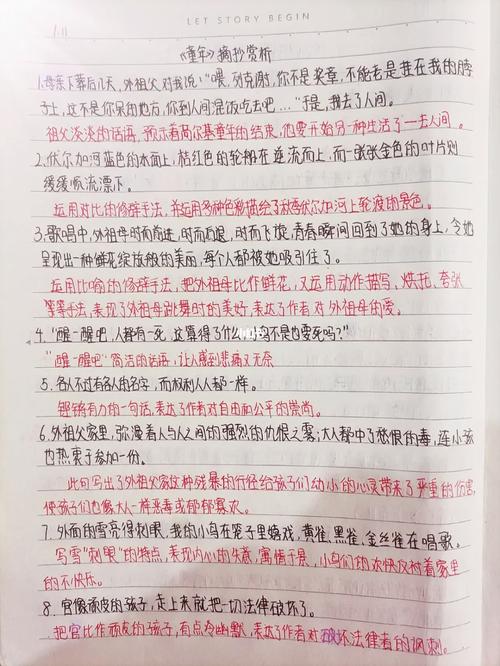 LET STORY BEGIN
1.11
《童年》摘抄赏析
1.母亲下葬后几天,外祖父对我说:“喂,列克谢,你不是奖章,不能老是挂在我的脖
子上,这不是你呆的地方,你到人间混饭吃去吧…”于是,我去了人间。
祖父淡淡的话语,预示着高尔基童年的结束,他要开始另一种生活了一去人间。
2.伏尔加河蓝色的水面上,桔红色的轮船在逆流而上,而一张张金色的叶片则
缓缓顺流漂下。
运用对比的修辞手法,并运用多种色彩描绘了秋季伏尔加河上轮渡的景色。
3.歌唱中,外祖母时而前进,时而后退,时而飞旋,青春瞬间回到了她的身上,令她
呈现出一种鲜花绽放般的美丽,每个人都被她吸引住了。
运用比喻的修辞手法,把外祖母比作鲜花,又运用动作描写、烘托、夸张
等等手法,表现了外祖母跳舞时的美好,表达了作者对外祖母的爱。
4.“醒一醒吧,人都有一死,这算得了什么,小鸟不是也要死吗?”
“醒一醒吧”简洁的话语,让人感到悲痛又无奈
5.各人不过有各人的名字,而权利人人都一样。
铿锵有力的一句话,表达了作者对自由和公平的崇尚。
6.外祖父家里,弥漫着人与人之间的强烈的仇恨之雾;大人都中了愁恨的毒,连小孩
也热衷于参加一份。
此句写出了外祖父家这种残暴的行径给孩子们幼小的心灵带来了严重的伤害,
使孩子们也像大人一样恶毒或郁郁寡欢。
7.外面的雪亮得刺眼,我的小鸟在笼子里嬉戏,黄雀、黑雀、金丝雀在唱歌。
写雪“刺眼”的特点,表现内心的失意,寓情于景,小鸟们的欢快反衬着家里
的不快乐。
8.官像顽皮的孩子,走上来就把一切法律破坏了。
把官比作顽皮的孩子,有点冷幽默,表达了作者对破坏法律者的讽刺。